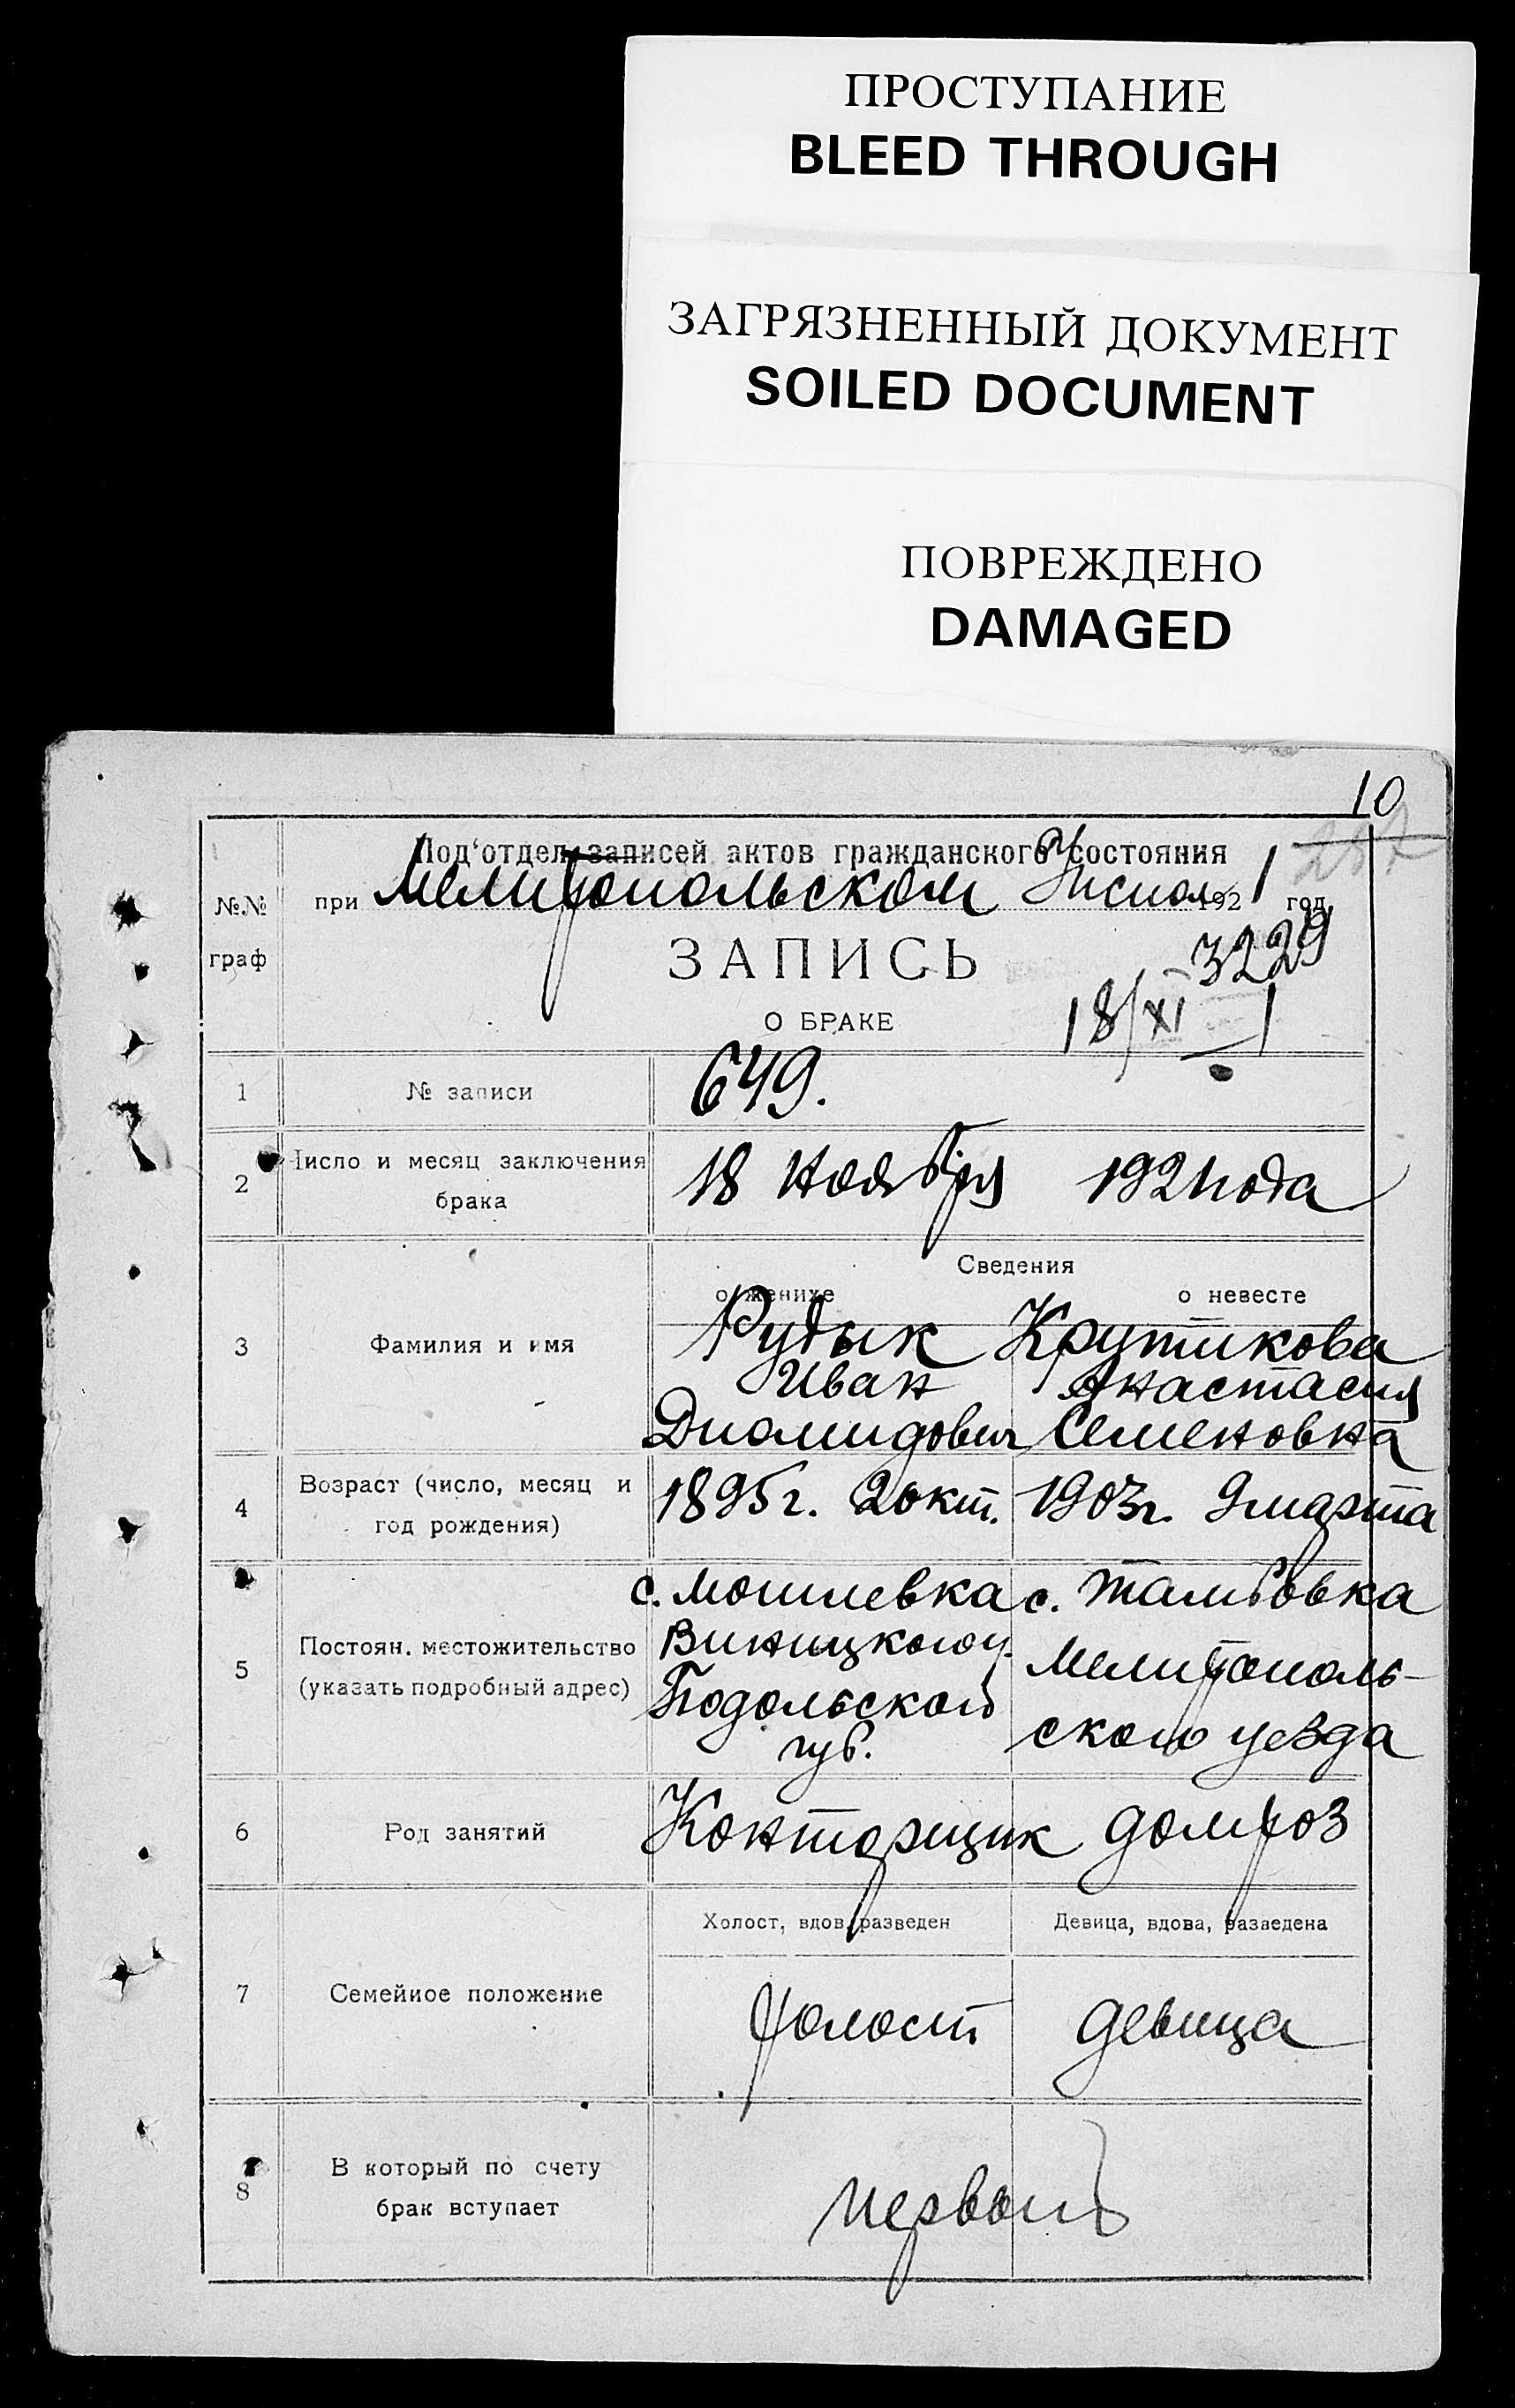 ПРОСТУПАНИЕ
BLEED THROUGH
ЗАГРЯЗНЕННЫЙ ДОКУМЕНТ
SOILED DOCUMENT
ПОВРЕЖДЕНО
DAMAGED
10
Под'отдел записей актов гражданского состояния
№№ граф
при Мелитопольском 1921 год
3229
ЗАПИСЬ
О БРАКЕ
18/XI 1
1 № записи 649.
2 Число и месяц заключения брака 18 Ноября 1921 года
Сведения
о женихе о невесте
3 Фамилия и имя
Рудык Крутикова
Иван Анастасия
Диомидович Семеновна
4 Возраст (число, месяц и год рождения)
1895 г. 2 окт. 1903 г. 9 марта
5 Постоян. местожительство (указать подробный адрес)
с. с. Тамбовка
Виницкого у. Мелитополь-
Подольской ского уезда
губ.
6 Род занятий Конторщик домхоз
Холост, вдов, разведен Девица, вдова, разведена
7 Семейное положение Холост девица
8 В который по счету брак вступает первый